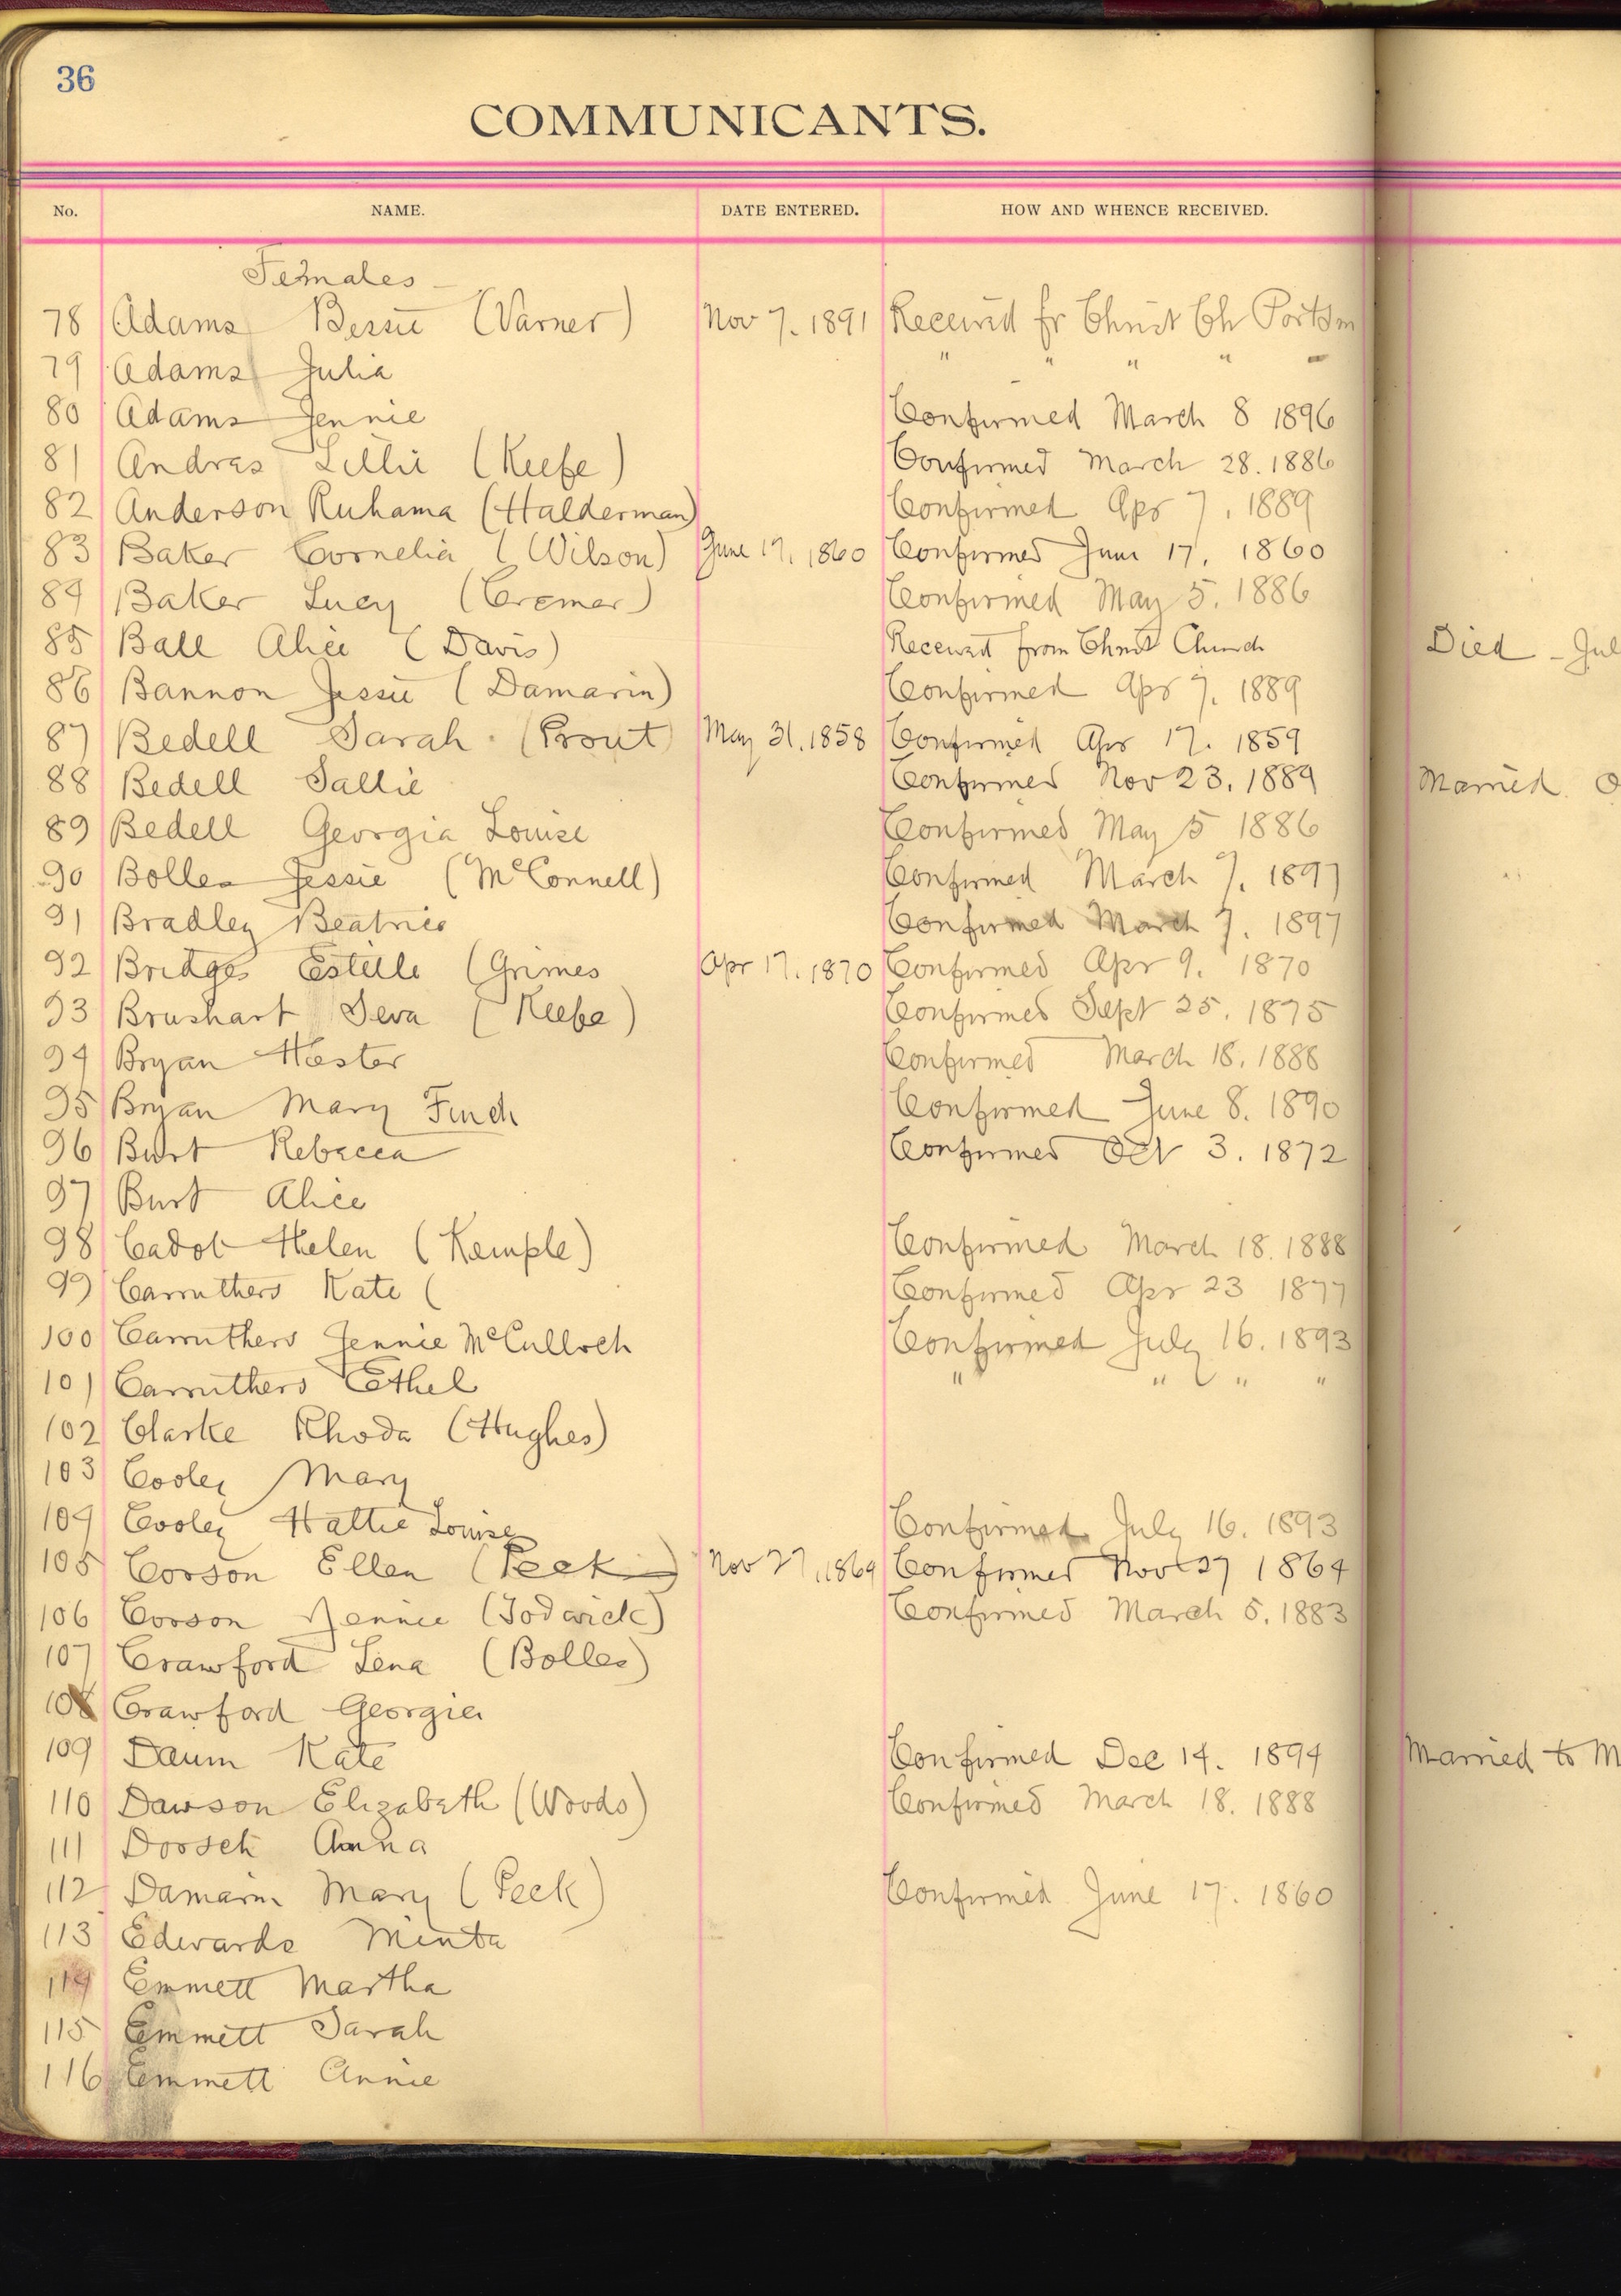 36
COMMUNICANTS.
No. NAME. DATE ENTERED. HOW AND WHENCE RECEIVED.
Females
78 Adams Bessie (Varner) Nov 7. 1891 Received fr Christ Ch Portsm
79 Adams Julia " " " "
80 Adams Jennie Confirmed March 8 1896
81 Andres Lillie (Keefe) Confirmed March 28. 1886
82 Anderson Ruhama (Halderman) Confirmed Apr 7. 1889
83 Baker Cornelia (Wilson) June 17. 1860 Confirmed June 17. 1860
84 Baker Lucy (Cremer) Confirmed May 5. 1886
85 Ball Alice (Davis) Received from Christ Church Died - Jul
86 Bannon Jessie (Damarin) Confirmed Apr 7. 1889
87 Bedell Sarah (Prout) May 31. 1858 Confirmed Apr 17. 1859
88 Bedell Sallie Confirmed Nov 23. 1889 Married. O
89 Bedell Georgia Louise Confirmed May 5 1886
90 Bolles Jessie (McConnell) Confirmed March 7. 1897
91 Bradley Beatrice Confirmed March 7. 1897
92 Bridges Estelle (Grimes Apr 17. 1870 Confirmed Apr 9. 1870
93 Brushart Seva (Keefe) Confirmed Sept 25. 1875
94 Bryan Hester Confirmed March 18. 1888
95 Bryan Mary Finch Confirmed June 8. 1890
96 Burt Rebecca Confirmed Oct 3. 1872
97 Burt Alice
98 Cadot Helen (Kemple) Confirmed March 18. 1888
99 Carruthers Kate ( Confirmed Apr 23 1877
100 Carruthers Jennie McCulloch Confirmed July 16. 1893
101 Carruthers Ethel " " " "
102 Clarke Rhoda (Hughes)
103 Cooley Mary
104 Cooley Hattie Louise Confirmed July 16. 1893
105 Corson Ellen (Peck) Nov 27, 1864 Confirmed Nov 27 1864
106 Corson Jennie (Jodwick) Confirmed March 5. 1883
107 Crawford Lena (Bolles)
108 Crawford Georgia
109 Daum Kate Confirmed Dec 14. 1894 Married to M
110 Dawson Elizabeth (Woods) Confirmed March 18. 1888
111 Dorsch Anna
112 Damarin Mary (Peck) Confirmed June 17. 1860
113 Edwards Minta
114 Emmett Martha
115 Emmett Sarah
116 Emmett Annie